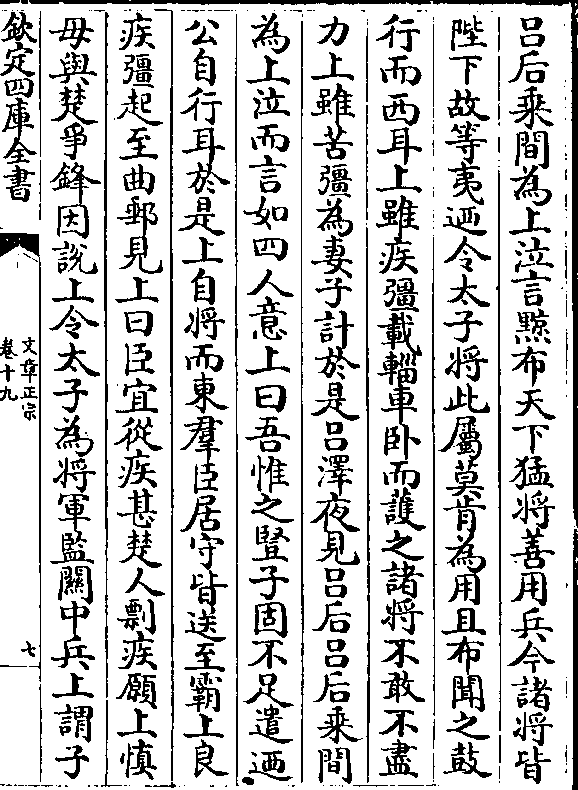 吕后乘間為上泣言黥布天下猛将善用兵今諸将皆
陛下故等夷迺令太子将此屬莫肯為用且布聞之鼓
行而西耳上雖疾彊載輜車卧而護之諸将不敢不盡
力上雖苦彊為妻子計於是吕澤夜見吕后吕后乘間
為上泣而言如四人意上曰吾惟之豎子固不足遣迺
公自行耳於是上自将而東羣臣居守皆送至霸上良
疾彊起至曲郵見上曰臣宜從疾甚楚人剽疾願上慎
毋與楚爭鋒因說上令太子為将軍監關中兵上謂子
欽定四庫全書
文章正宗
卷十九
七